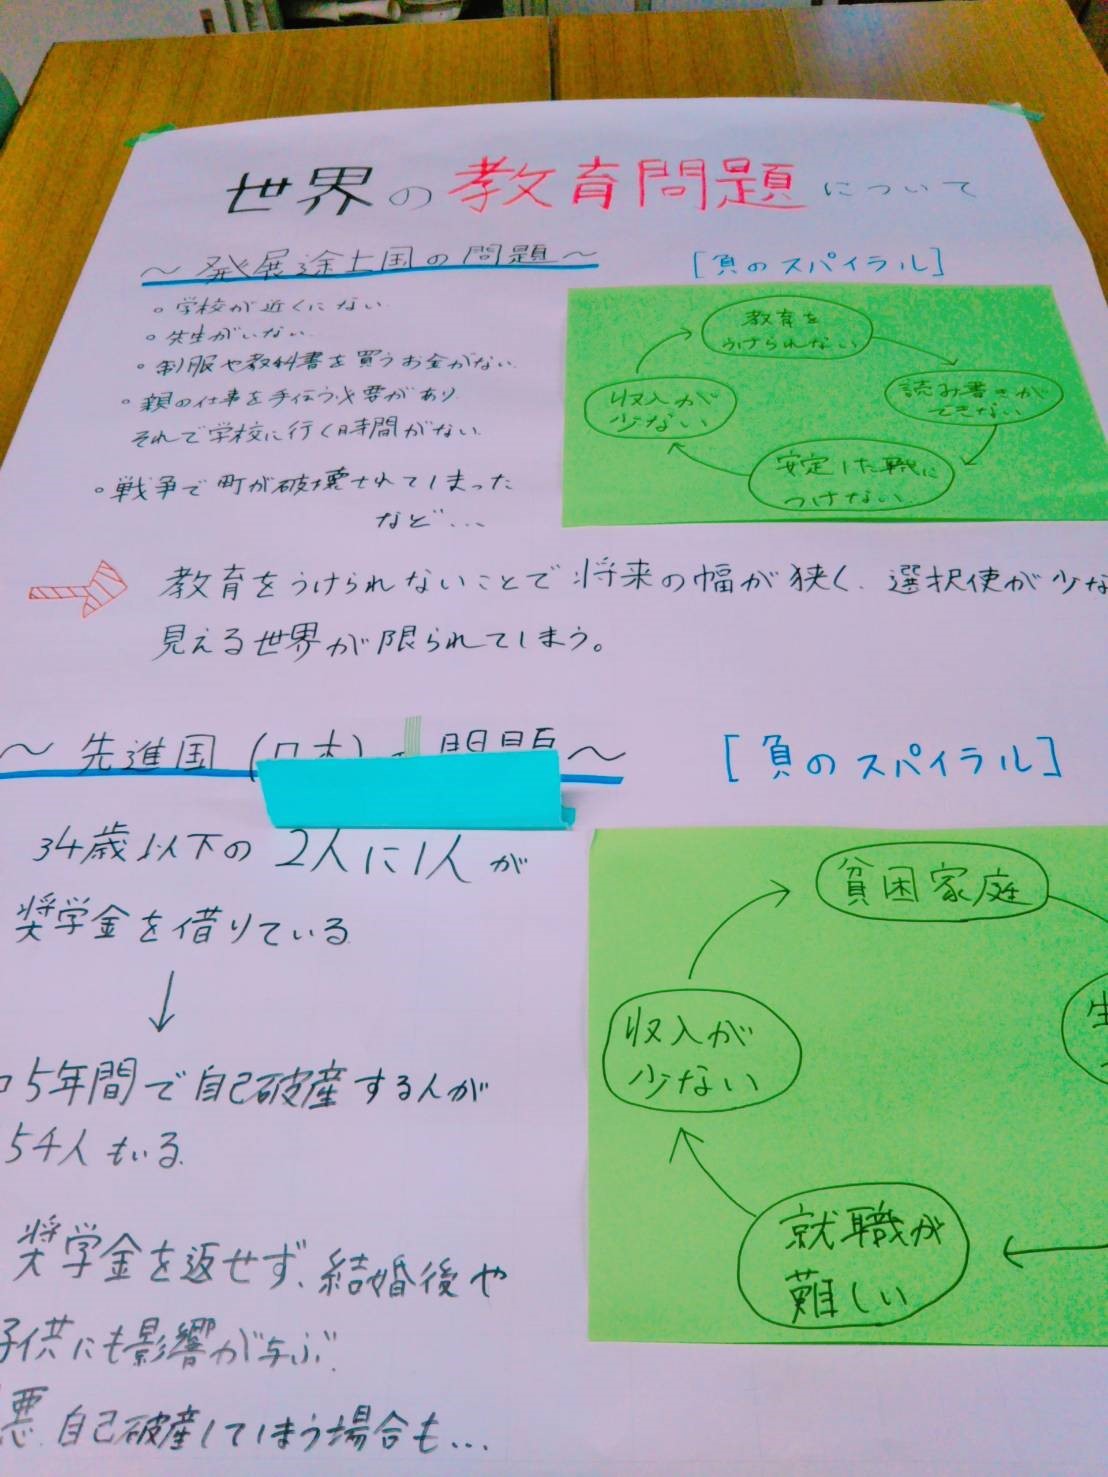 世界の教育問題について
~発展途上国の問題~
。学校が近くにない
。先生がいない
。制服や教科書を買うお金がない
。親の仕事を手伝う必要があり
それで学校に行く時間がない
。戦争で町が破壊されてしまった
など…
[負のスパイラル]
教育を
うけられない
読み書きが
できない
安定した職に
つけない
収入が
少ない
教育をうけられないことで将来の幅が狭く、選択使が少な
見える世界が限られてしまう。
~先進国(日本)の問題~
34歳以下の2人に1人が
奨学金を借りている
5年間で自己破産する人が
54人もいる
奨学金を返せず、結婚後や
子供にも影響が
悪 自己破産してしまう場合も…
[負のスパイラル]
貧困家庭
生
就職が
難しい
収入が
少ない